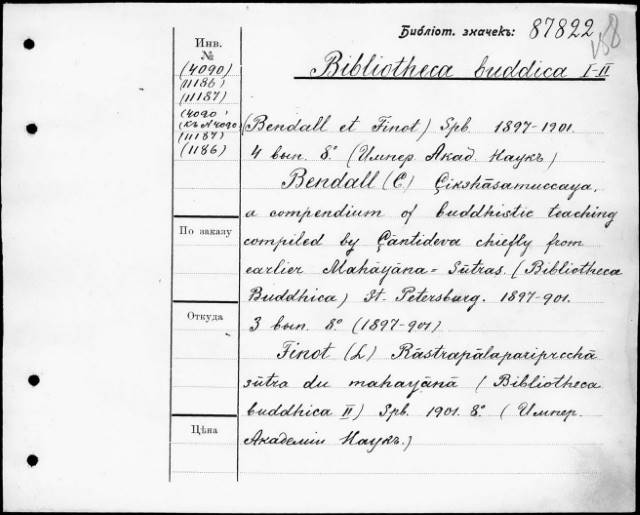 Библіот. значекъ: 87822
158
Инв.
№
(4090)
(11186)
(11187)
(4090)
(къ № 4090)
(11187)
(1186)
Bibliotheca buddica I-II
(Bendall et Finot) Spb. 1897-1901.
4 вып. 8° (Импер. Акад. Наукъ)
Bendall (C) Çikshāsamuccaya,
a compendium of buddhistic teaching
compiled by Çāntideva chiefly from
earlier Mahāyāna=Sūtras. (Bibliotheca
Buddhica) St. Petersburg. 1897-901.
3 вып. 8° (1897-901)
Finot (L) Rāstrapālapariprcchā
sūtra du mahayānā (Bibliotheca
buddhica II) Spb. 1901. 8° (Импер.
Академіи Наукъ.)
По заказу
Откуда
Цѣна